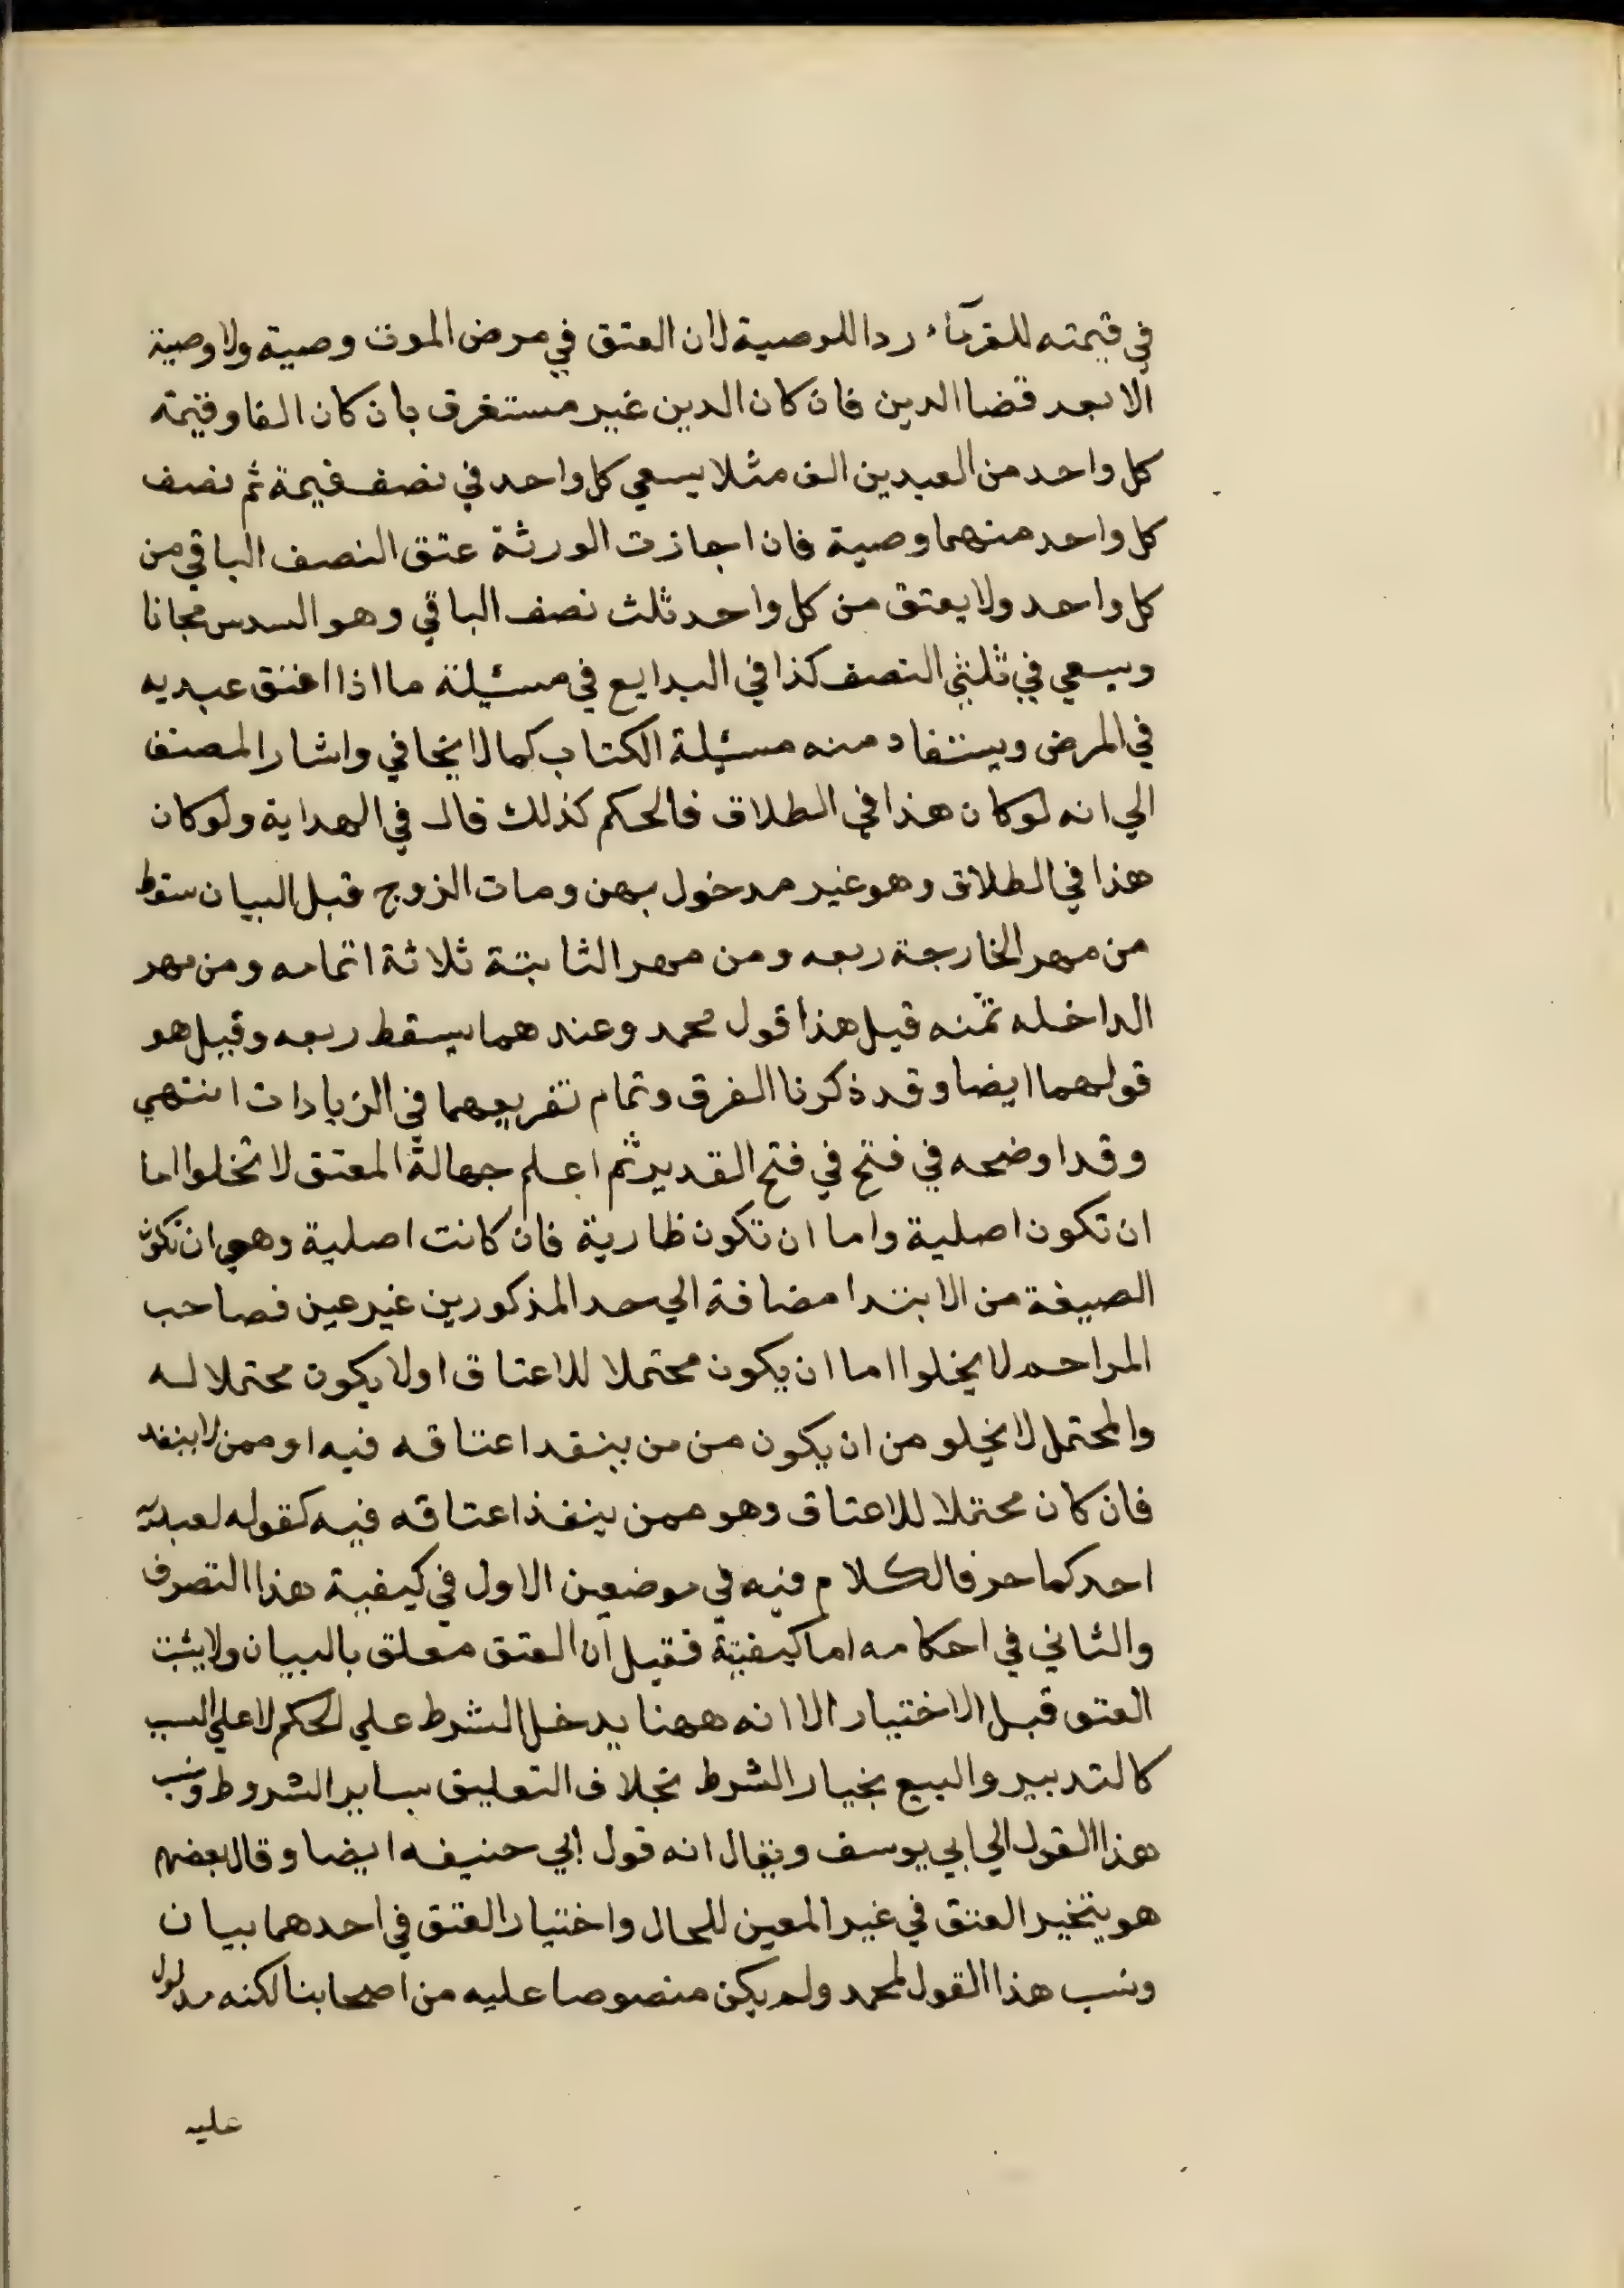 في قيمته للغرماء ردا للوصية لان العتق في مرض الموت وصية ولا وصية
الا بعد قضا الدين فان كان الدين غير مستغرق بان كان الفا وقيمة
كل واحد من العبدين الف مثلا يسعي كل واحد في نصف قيمة ثم نصف
كل واحد منهما وصية فان اجازت الورثة عتق النصف الباقي من
كل واحد ولا يعتق من كل واحد ثلث نصف الباقي وهو السدس مجانا
ويسعي في ثلثي النصف كذا في البدايع في مسئلة ما اذا اعتق عبديه
في المرض ويستفاد منه مسئلة الكتاب كما لا يخافي واشار المصنف
الي انه لو كان هذا في الطلاق فالحكم كذلك قال في الهداية ولو كان
هذا في الطلاق وهو غير مدخول بهن ومات الزوج قبل البيان سقط
من مهر الخارجة ربعه ومن مهر الثابتة ثلاثة اتمامه ومن مهر
الداخله ثمنه قيل هذا قول محمد وعندهما يسقط ربعه وقيل هو
قولهما ايضا وقد ذكرنا الفرق وتمام تفريعهما في الزيادات انتهي
وقد اوضحه في فتح في فتح القدير ثم اعلم جهالة المعتق لا تخلوا اما
ان تكون اصلية واما ان تكون ظارية فان كانت اصلية وهي ان تكون
الصيغة من الابتدا مضافة الي حد المذكورين غير عين فصاحب
المراحم لا يخلوا اما ان يكون محتملا للاعتاق او لا يكون محتملا له
والمحتمل لا يخلو من ان يكون من من ينفد اعتاقه فيه او ممن لا ينفد
فان كان محتملا للاعتاق وهو ممن ينفذ اعتاقه فيه كقوله لعبديه
احدكما حر فالكلام فيه في موضعين الاول في كيفية هذا التصرف
والثاني في احكامه اما كيفيتة فقيل ان العتق معلق بالبيان ولا يثبت
العتق قبل الاختيار الا انه ههنا يدخل الشرط علي الحكم لا علي السبب
كالتدبير والبيع بخيار الشرط بخلاف التعليق بساير الشروط ونسب
هذا القول الي ابي يوسف ويقال انه قول ابي حنيفه ايضا وقال بعضهم
هو يتخير العتق في غير المعين للحال واختيار العتق في احدهما بيان
ونسب هذا القول لمحمد ولم يكن منصوصا عليه من اصحابنا لكنه مدلول
عليه